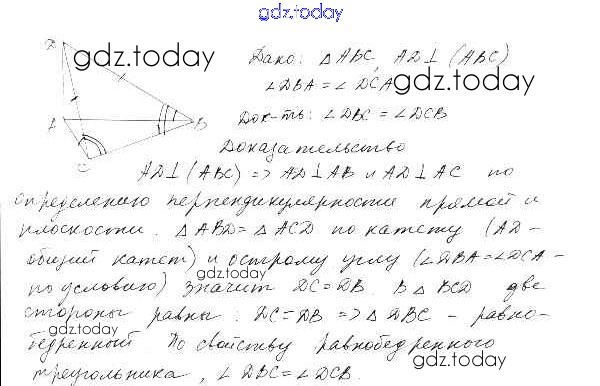 gdz.today
D
gdz.today
Дано: △ABC, AD⊥(ABC)
∠DBA = ∠DCA
gdz.today
A
B
C
Док-ть: ∠DBC = ∠DCB
Доказательство
AD⊥(ABC) => AD⊥AB и AD⊥AC по
определению перпендикулярности прямой и
плоскости. △ABD=△ACD по катету (AD-
общий катет) и острому углу (∠DBA=∠DCA-
gdz.today
по условию) значит DC=DB. В △BCD две
стороны равны: DC=DB => △DBC - равно-
gdz.today
бедренный По свойству равнобедренного
gdz.today
треугольника, ∠DBC=∠DCB.